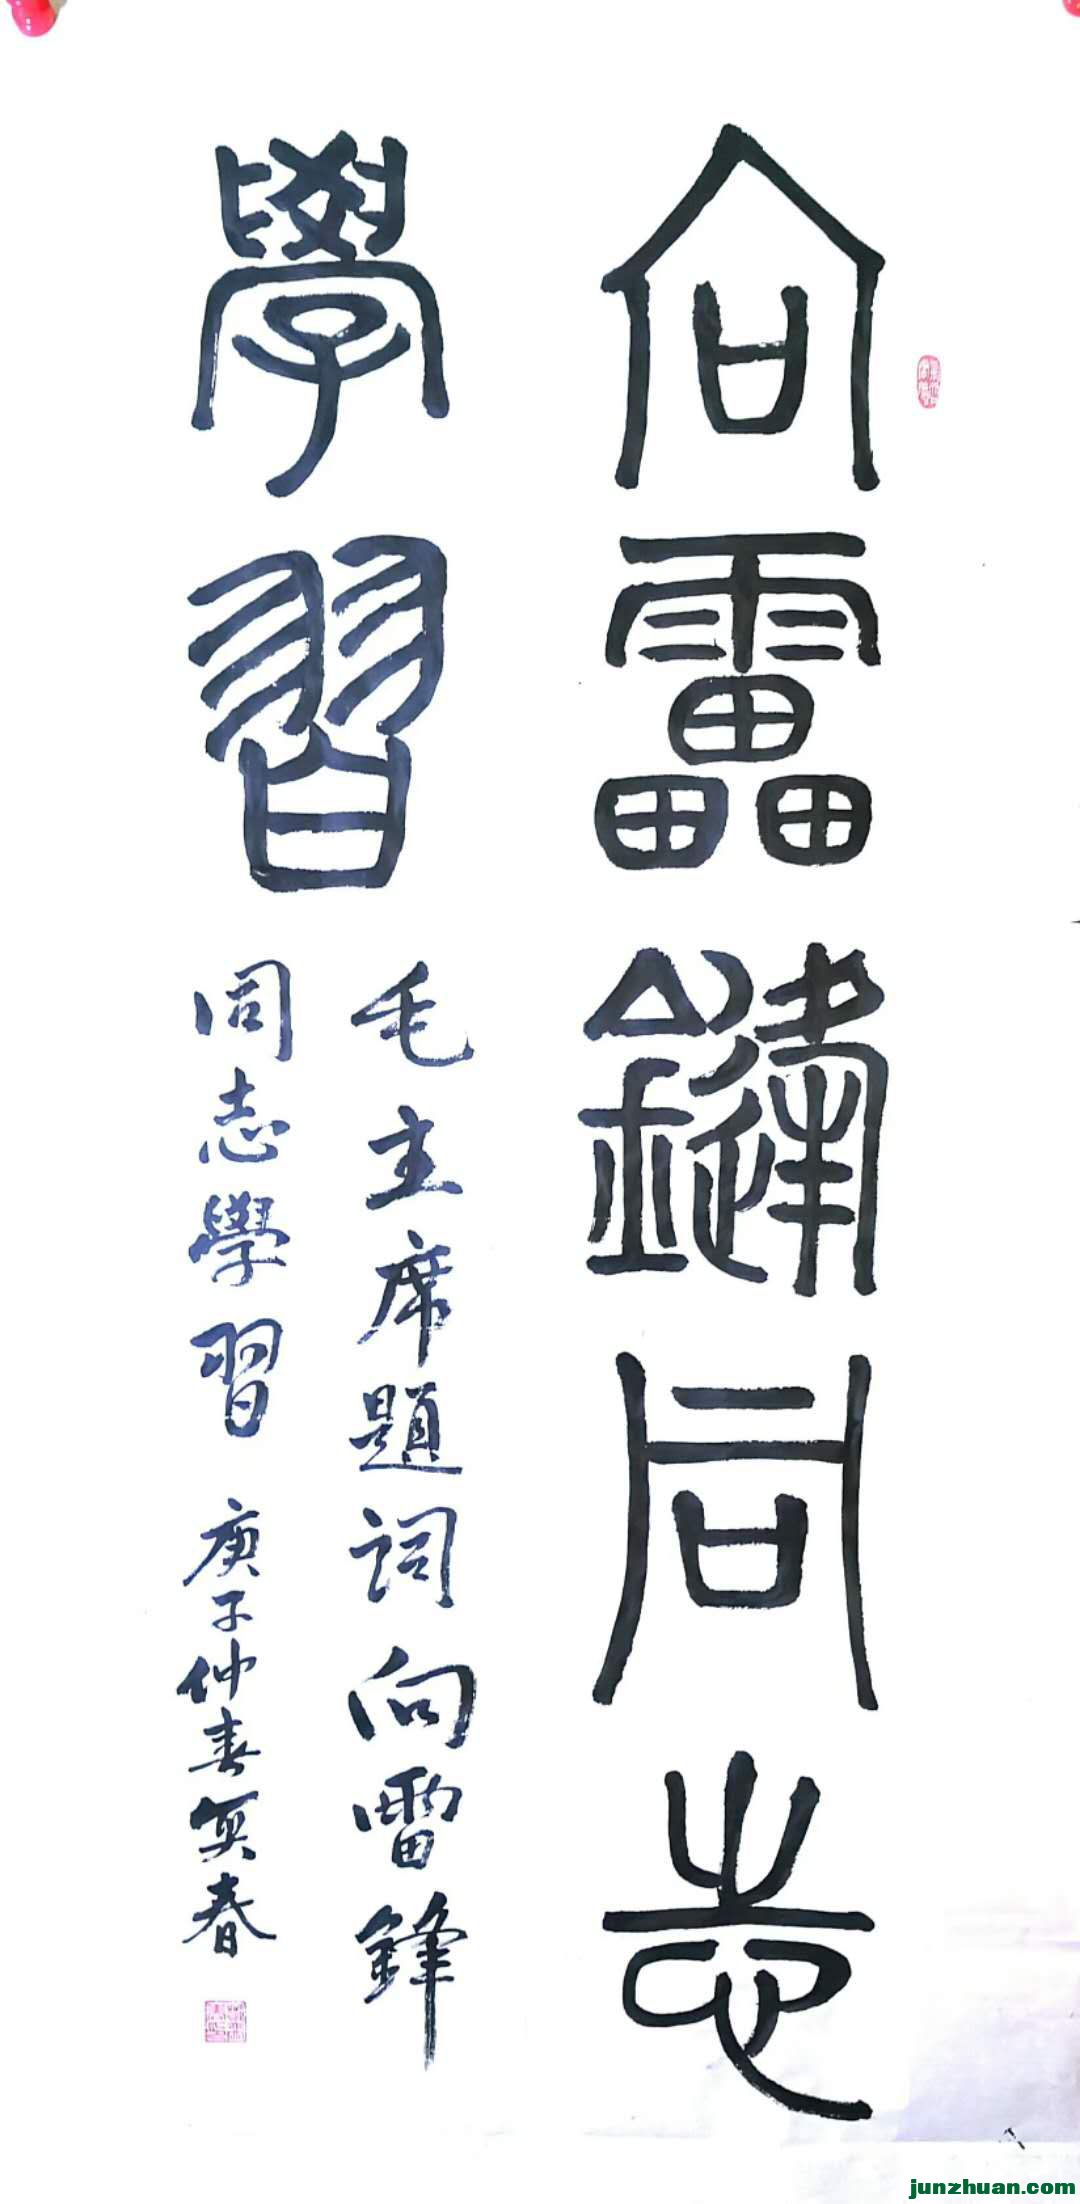 向靁鏠同志
學習
毛主席題詞向雷鋒
同志學習 庚子仲春 春
junzhuan.com